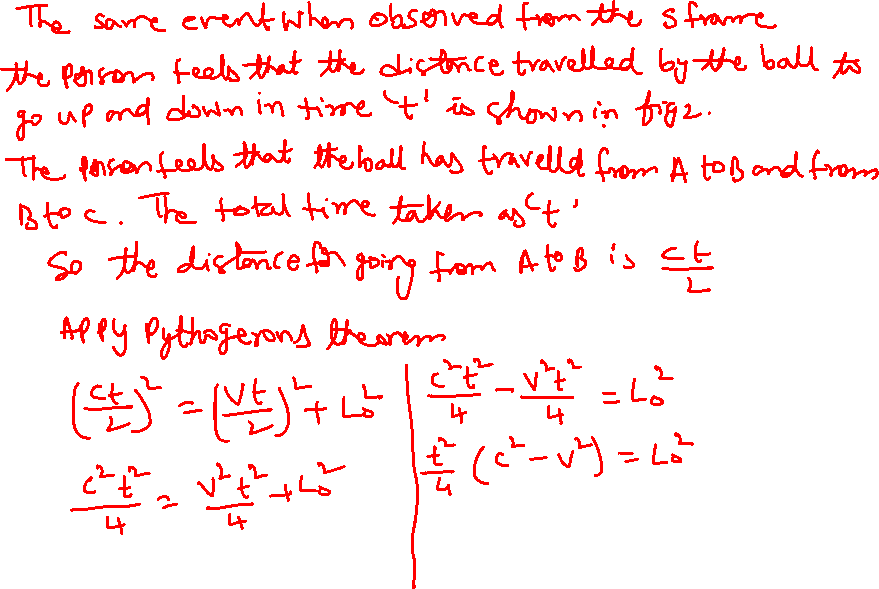 The same event when observed from the s frame
the person feels that the distance travelled by the ball to
go up and down in time 't' is shown in fig 2.
The person feels that the ball has travelld from A to B and from
B to C. The total time taken as 't'
So the distance for going from A to B is ct/2
APPly Pythagerons thearem
(ct/2)² = (vt/2)² + L₀²
c²t²/4 = v²t²/4 + L₀²
c²t²/4 - v²t²/4 = L₀²
t²/4 (c² - v²) = L₀²